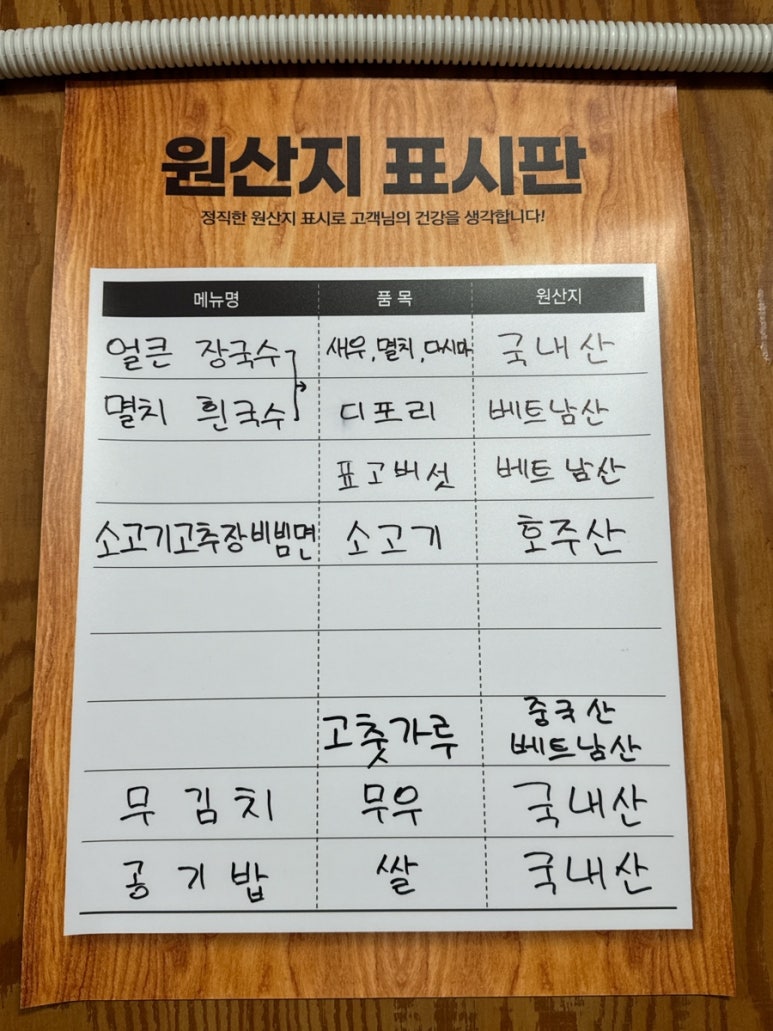 원산지 표시판
정직한 원산지 표시로 고객님의 건강을 생각합니다!
메뉴명 품목 원산지
얼큰 장국수 새우, 멸치, 다시마 국내산
멸치 흰국수 디포리 베트남산
표고버섯 베트남산
소고기고추장비빔면 소고기 호주산
고춧가루 중국산
베트남산
무김치 무우 국내산
공기밥 쌀 국내산